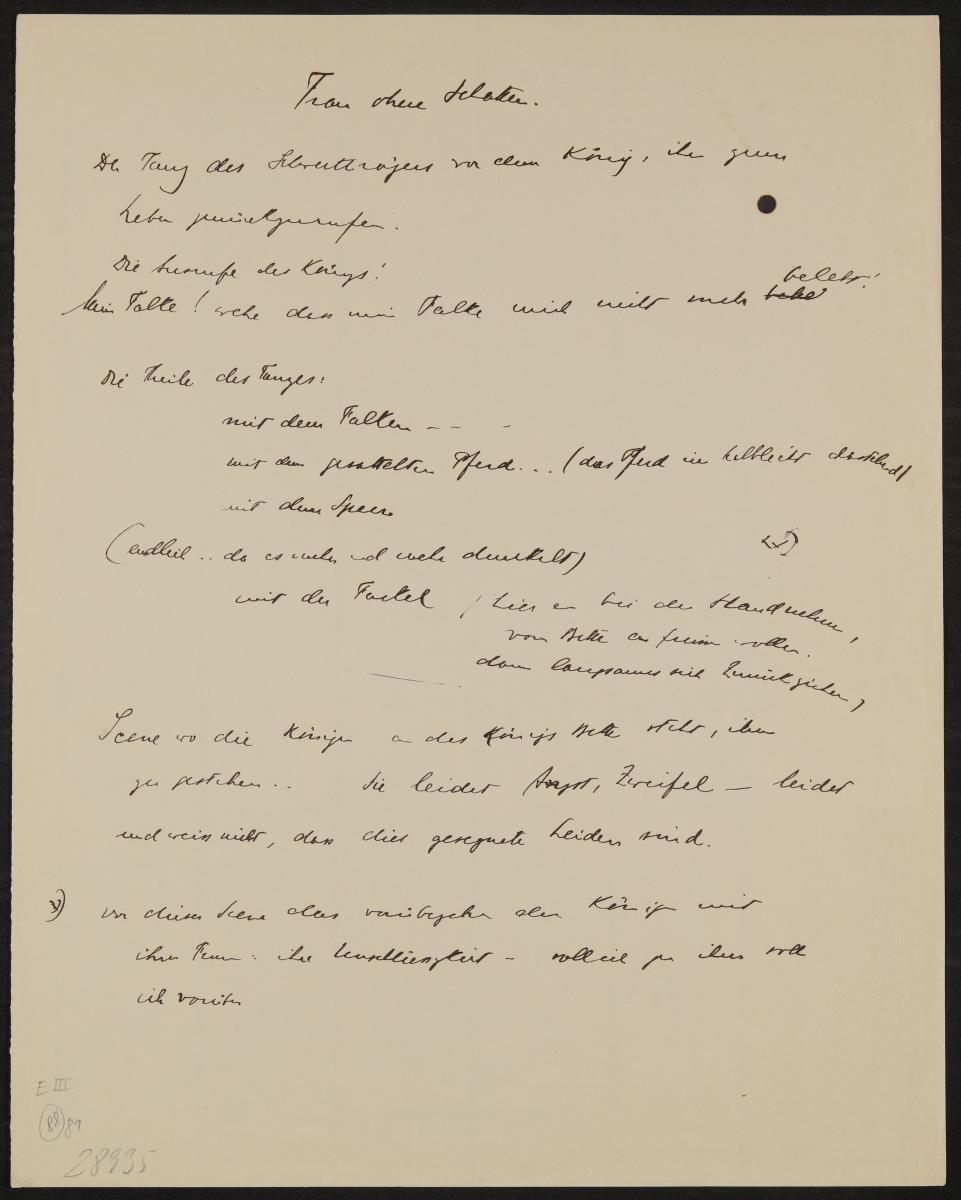 Frau ohne Schatten.
Der Tanz des Schwertträgers vor dem König, ihn zum
Leben zurückzurufen.
Die Ausrufe des Königs:
Mein Falke! wehe dass mein Falke mich nicht mehr belebt!
Die Theile des Tanzes:
mit dem Falken – – –
mit dem gesattelten Pferd... (das Pferd im Halblicht dastehend)
mit dem Speer
(endlich .. da es mehr und mehr dunkelt)
mit der Fackel (hier er bei der Hand nehmen,
vom Bette wollen.
dann langsames sich Zurückziehen)
Scene wo die Königin an des Königs Bette steht, ihm
zu gestehen .. Sie leidet Angst, Zweifel – leidet
und weiss nicht, dass dies gesegnete Leiden sind.
x) vor dieser Scene das vorübergehn der Königin mit
ihren Frauen: ihre Unschlüssigkeit – soll ich zu ihm soll
ich vorüber
E III
88 89
28935